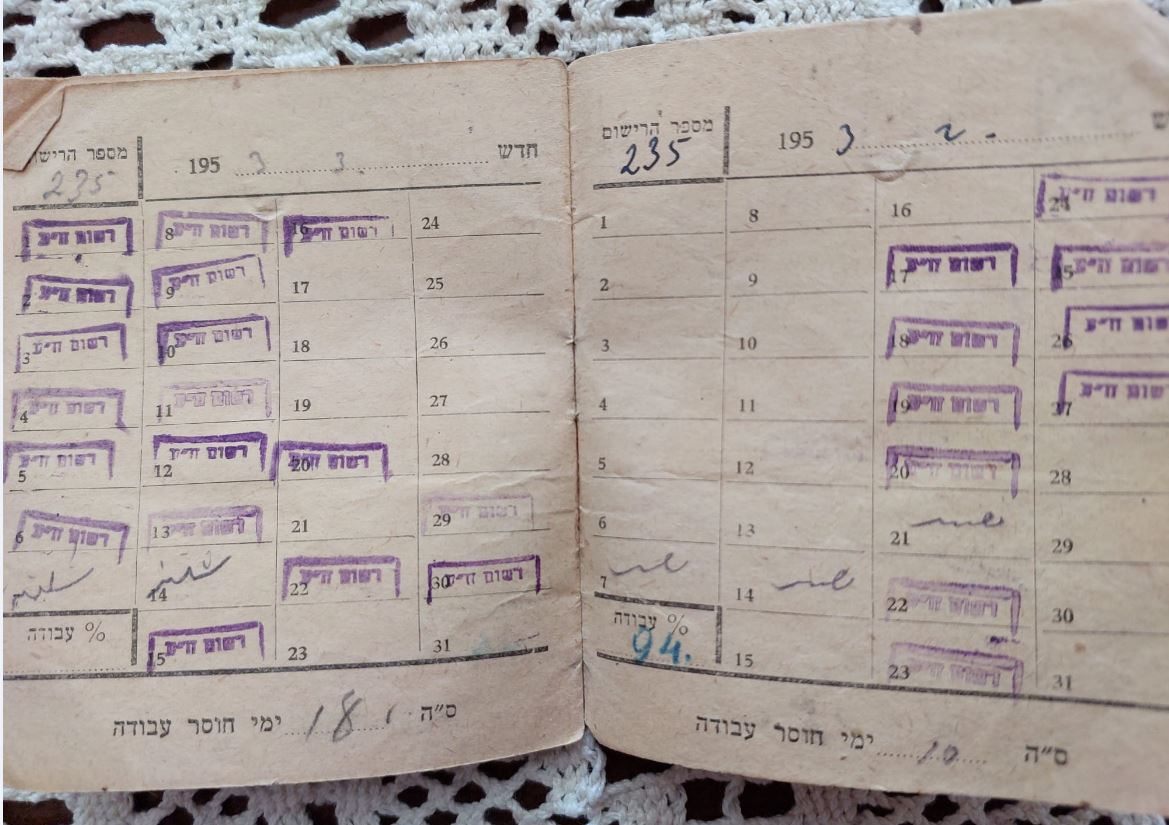 מספר הרישום
235
195 3 2.
1
2
3
4
5
6
7 שבת
% עבודה
94.
8
9
10
11
12
13
14 שבת
15
16
17 רשום חי״ע
18 רשום חי״ע
19 רשום חי״ע
20 רשום חי״ע
21 שבת
22 רשום חי״ע
23 רשום חי״ע
24 רשום חי״ע
25 רשום חי״ע
26 רשום
27 רשום
28
29
30
31
ס״ה 10 ימי חוסר עבודה
מספר
235
חדש 3 3. 195
1 רשום חי״ע
2 רשום חי״ע
3 רשום חי״ע
4 רשום חי״ע
5 רשום חי״ע
6 רשום חי״ע
% עבודה
8 רשום חי״ע
9 רשום חי״ע
10 רשום חי״ע
11 רשום חי״ע
12 רשום חי״ע
13 רשום חי״ע
14
15 רשום חי״ע
16 רשום חי״ע
17
18
19
20 רשום חי״ע
21
22 רשום חי״ע
23
24
25
26
27
28
29 רשום חי״ע
30 רשום חי״ע
31
ס״ה 18 ימי חוסר עבודה